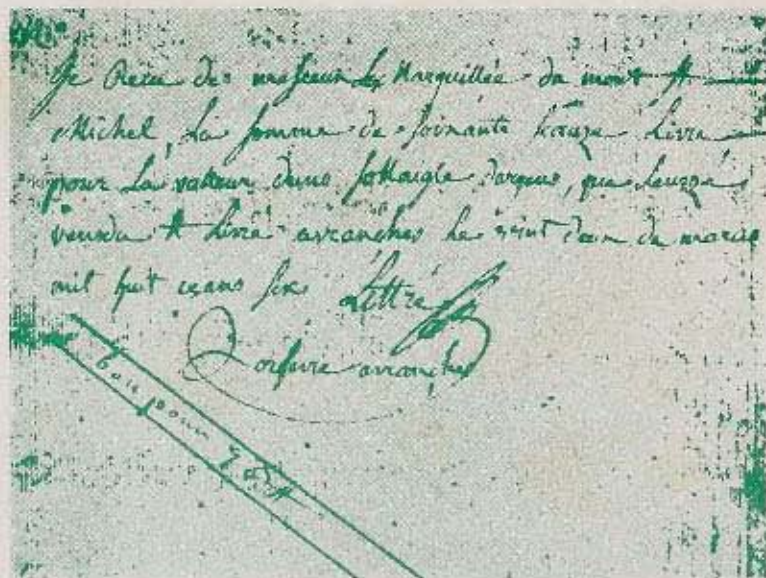 Je Recu de mesieur Les Marguillée du mont St
Michel, La somme de soixante traize Livre
pour La valleur dune dargens, que Leurzé
vendu & Livré avranches Le vint deux de marse
mil huit cens six Littré
orfevre avranches
bon pour 73 ⁋